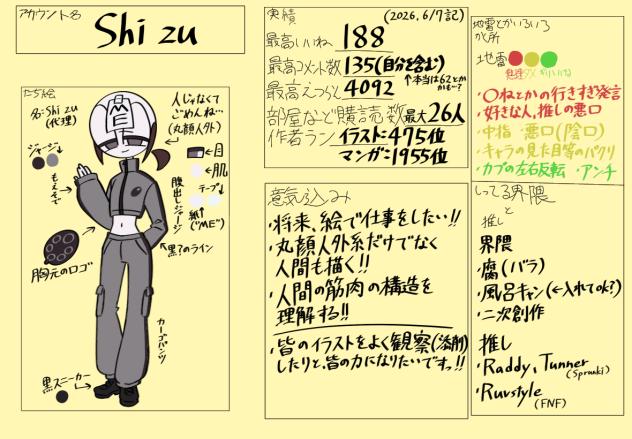 アカウント名
Shi zu
たち絵
名:Shi zu
(代理)
人じゃなくて
ごめんね…
(丸顔人外)
ジャージ
もえそで
←目
←肌
テープ↓
紙↑
("ME")
腹出しジャージ
↑黒?のライン
胸元のロゴ
カーゴパンツ
黒スニーカー
ME
実績
(2026,6/7記)
最高いいね 188
最高コメント数 135(自分を含む)
↑本当は62とか
かも…?
最高えつらん 4092
部屋など購読数 最大26人
作者ラン イラスト:475位
マンガ:1955位
意気込み
・将来、絵で仕事をしたい!!
・丸顔人外系だけでなく
人間も描く!!
・人間の筋肉の構造を
理解する!!
・皆のイラストをよく観察(添削)
したりと、皆の力になりたいですっ!!
地雷とかいろいろ
かく所
地雷
・〇ねとかの行きすぎ発言
・好きな人,推しの悪口
・中指 ・悪口(陰口)
・キャラの見た目等のパクリ
・カプの左右反転 ・アンチ
しってる界隈
と
推し
界隈
・腐(バラ)
・風呂キャン(←入れてok?)
・二次創作
推し
・Raddy、Tunner
(Sprunki)
・Ruvstyle
(FNF)